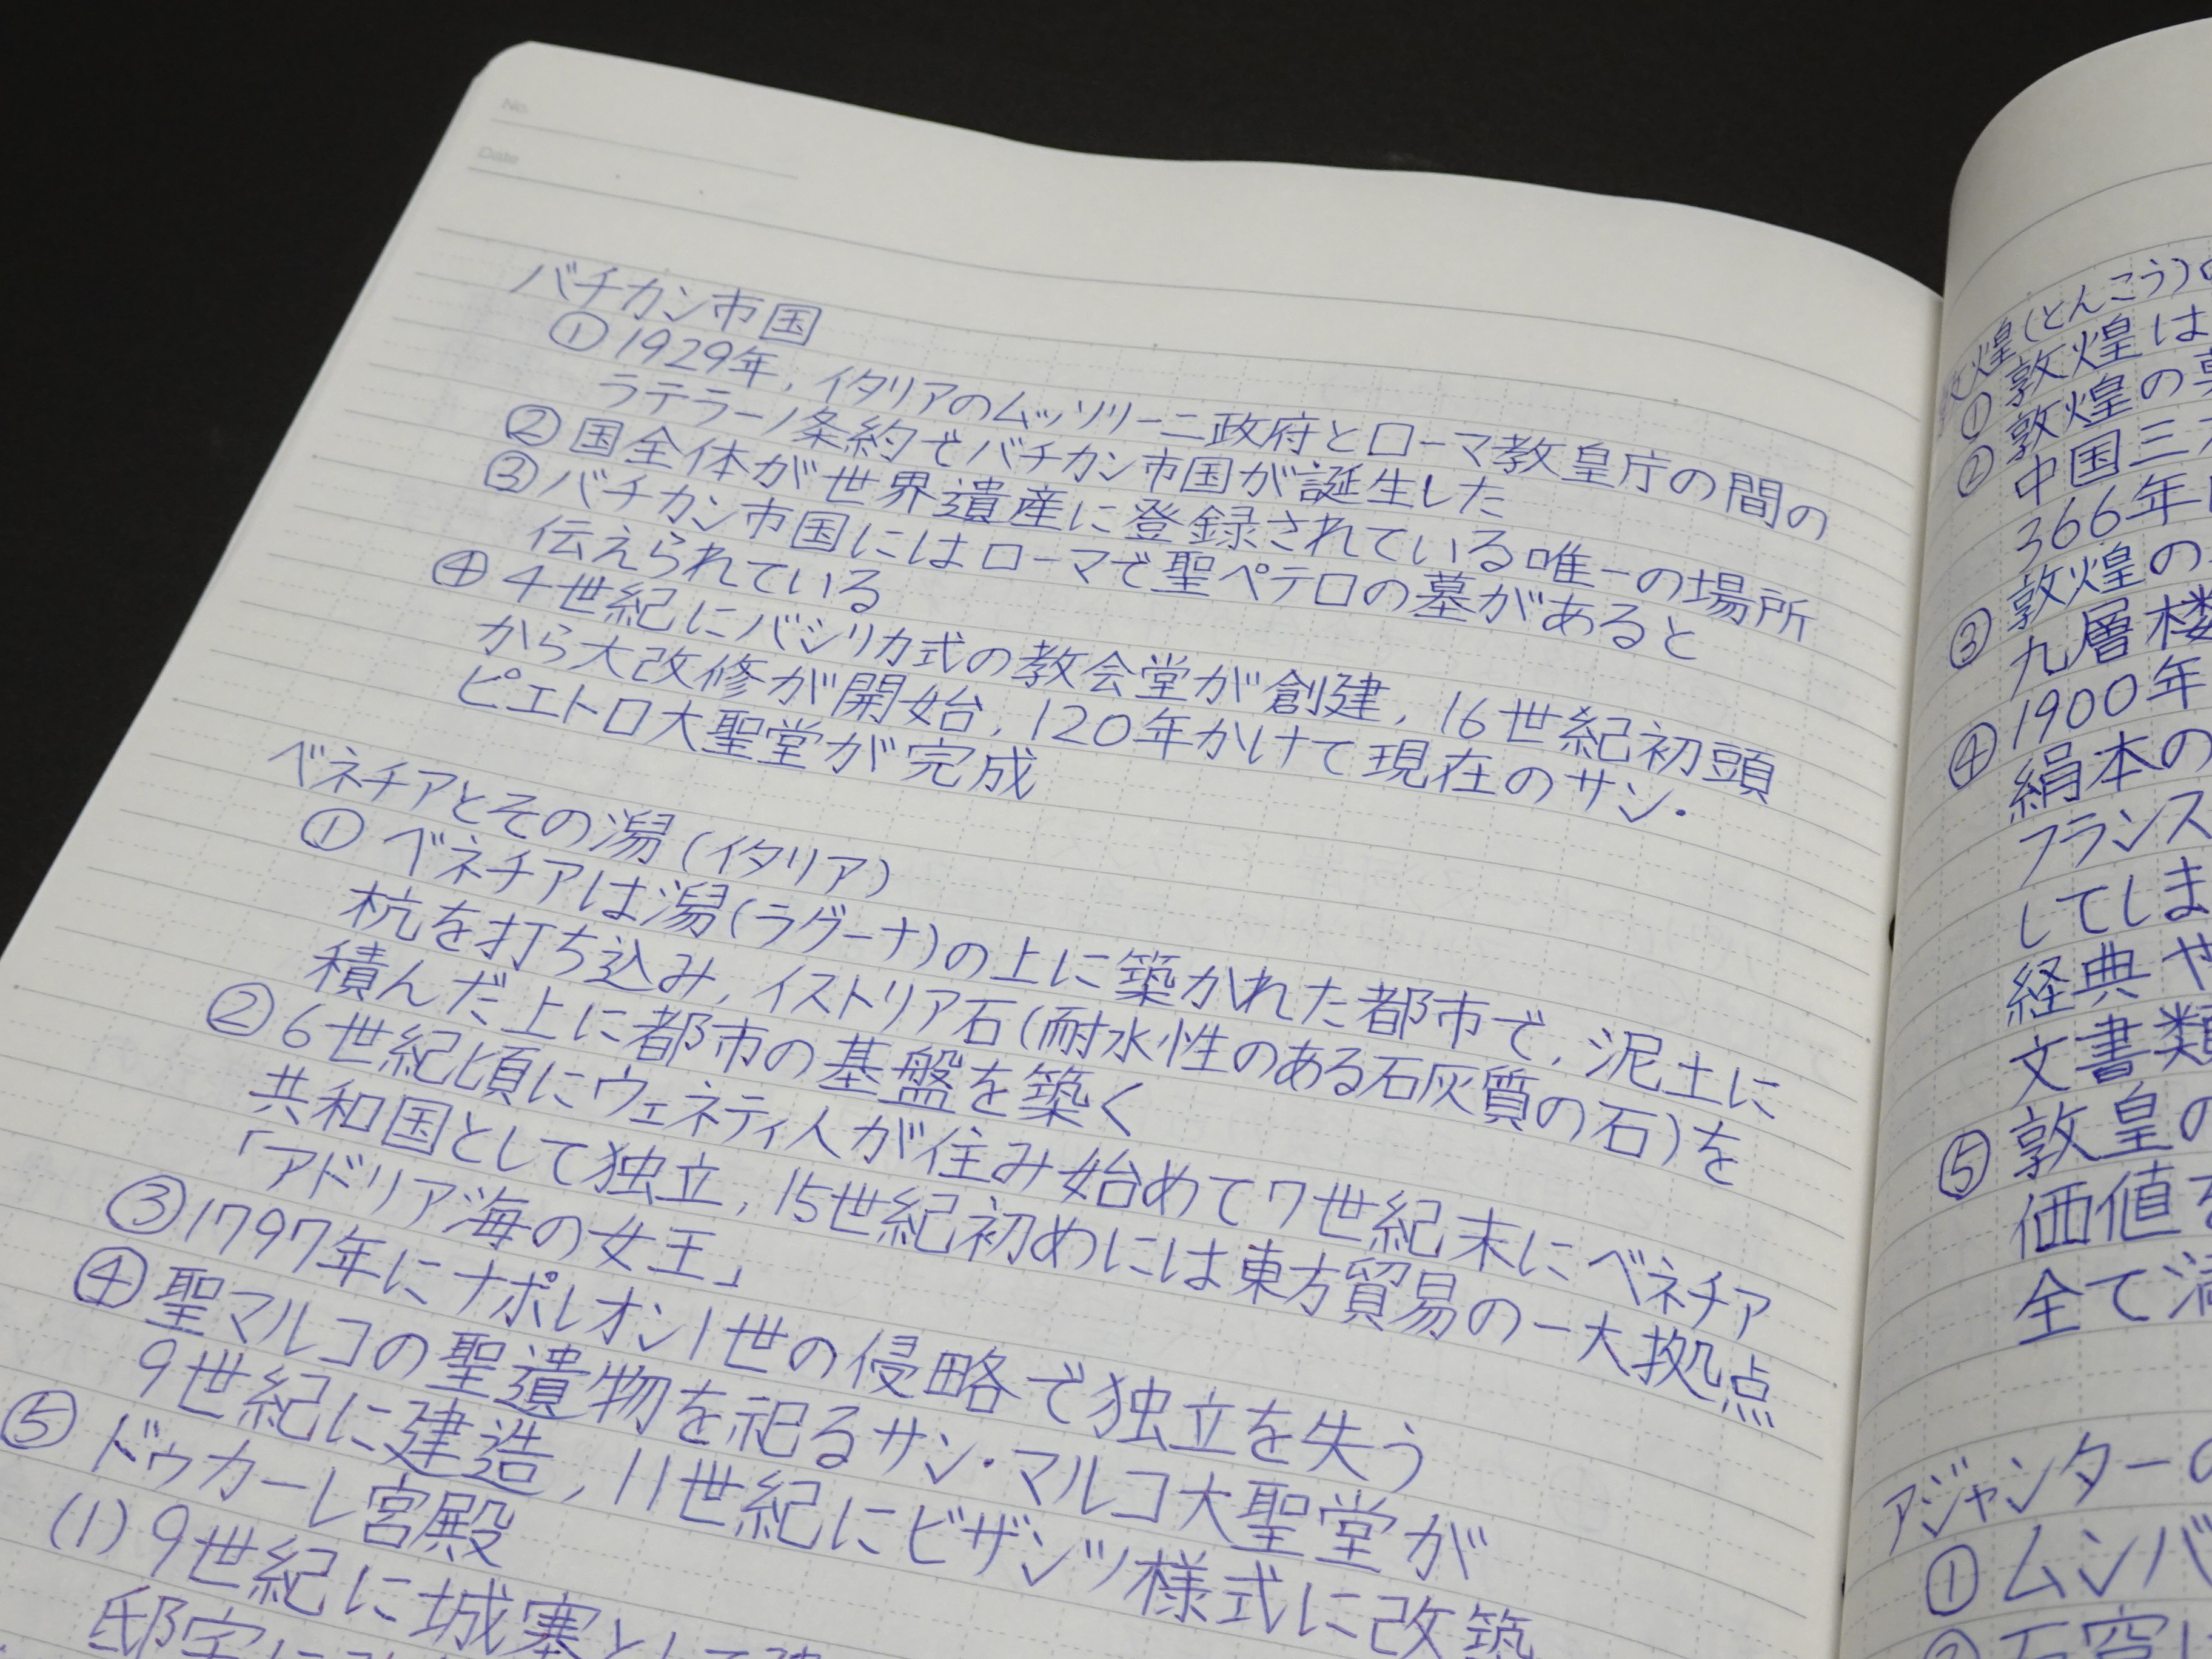 No.
Date
バチカン市国
① 1929年, イタリアのムッソリーニ政府とローマ教皇庁の間の
ラテラーノ条約でバチカン市国が誕生した
② 国全体が世界遺産に登録されている唯一の場所
③ バチカン市国にはローマで聖ペテロの墓があると
伝えられている
④ 4世紀にバシリカ式の教会堂が創建, 16世紀初頭
から大改修が開始, 120年かけて現在のサン・
ピエトロ大聖堂が完成
ベネチアとその潟 (イタリア)
① ベネチアは潟(ラグーナ)の上に築かれた都市で, 泥土に
杭を打ち込み, イストリア石(耐水性のある石灰質の石)を
積んだ上に都市の基盤を築く
② 6世紀頃にウェネティ人が住み始めて7世紀末にベネチア
共和国として独立, 15世紀初めには東方貿易の一大拠点
「アドリア海の女王」
③ 1797年にナポレオン1世の侵略で独立を失う
④ 聖マルコの聖遺物を祀るサン・マルコ大聖堂が
9世紀に建造, 11世紀にビザンツ様式に改築
⑤ ドゥカーレ宮殿
(1) 9世紀に城塞として
邸宅に
煌(とんこう)
① 敦煌は
② 敦煌の
中国三
366年
③ 敦煌の
九層楼
④ 1900年
絹本の
フランス
してしま
経典や
文書類
⑤ 敦皇の
価値を
全て
アジャンターの
① ムンバ
② 石窟